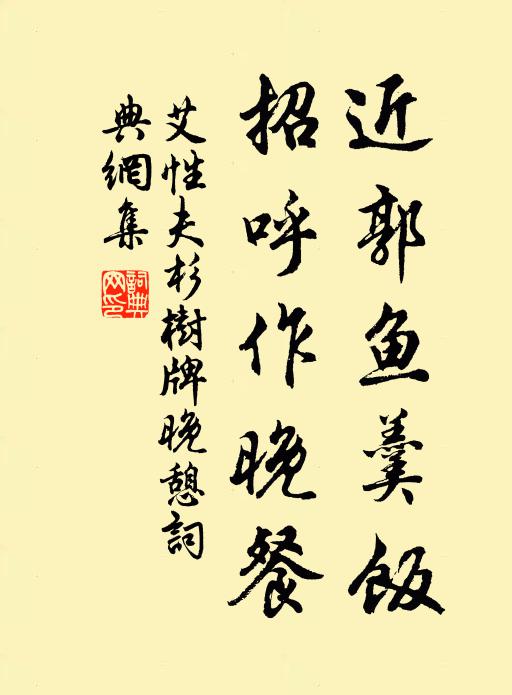 近郭鱼羹饭
招呼作晚餐
艾性夫杉樹牌晚憩詞
典網集
詞典网印